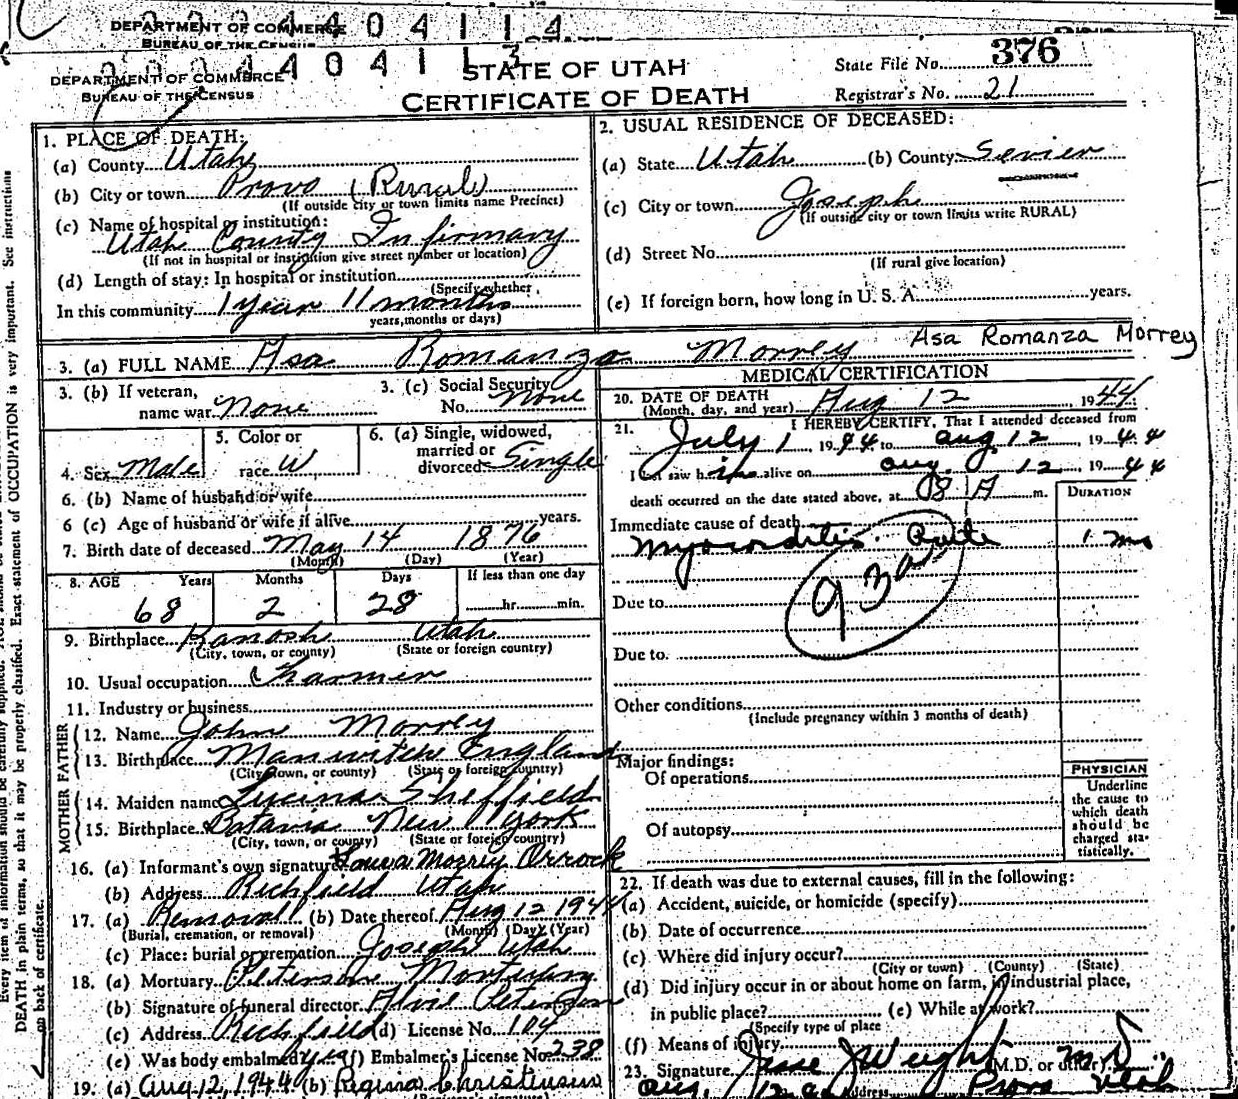 DEPARTMENT OF COMMERCE
BUREAU OF THE CENSUS
DEPARTMENT OF COMMERCE
BUREAU OF THE CENSUS
STATE OF UTAH
CERTIFICATE OF DEATH
State File No. 376
Registrar's No. 21
1. PLACE OF DEATH:
(a) County Utah
(b) City or town Provo (Rural)
(If outside city or town limits name Precinct)
(c) Name of hospital or institution:
Utah County Infirmary
(If not in hospital or institution give street number or location)
(d) Length of stay: In hospital or institution
(Specify whether
In this community 1 year 11 months
years, months or days)
2. USUAL RESIDENCE OF DECEASED:
(a) State Utah (b) County Sevier
(c) City or town Joseph
(If outside city or town limits write RURAL)
(d) Street No.
(If rural give location)
(e) If foreign born, how long in U. S. A. years.
3. (a) FULL NAME Asa Romanza Morrey Asa Romanza Morrey
3. (b) If veteran, name war None
3. (c) Social Security No. None
4. Sex Male
5. Color or race W
6. (a) Single, widowed, married or divorced Single
6. (b) Name of husband or wife
6 (c) Age of husband or wife if alive years.
7. Birth date of deceased May 14 1876
(Month) (Day) (Year)
8. AGE Years Months Days If less than one day
68 2 28 hr. min.
9. Birthplace Kanosh Utah
(City, town, or county) (State or foreign country)
10. Usual occupation Farmer
11. Industry or business
FATHER
12. Name John Morrey
13. Birthplace England
(City, town, or county) (State or foreign country)
MOTHER
14. Maiden name Lucina Sheffield
15. Birthplace Batavia New York
(City, town, or county) (State or foreign country)
16. (a) Informant's own signature Laura Morrey Orrock
(b) Address Richfield Utah
17. (a) Removal (b) Date thereof Aug 12 1944
(Burial, cremation, or removal) (Month) (Day) (Year)
(c) Place: burial or cremation Joseph Utah
18. (a) Mortuary Peterson Mortuary
(b) Signature of funeral director Peterson
(c) Address Richfield (d) License No. 104
(e) Was body embalmed yes (f) Embalmer's License No. 238
19. (a) Aug 12, 1944 (b) Regina Christensen
MEDICAL CERTIFICATION
20. DATE OF DEATH
(Month, day, and year) Aug 12, 1944
21. I HEREBY CERTIFY, That I attended deceased from
July 1 1944 to Aug 12, 1944
I last saw him alive on Aug. 12, 1944
death occurred on the date stated above, at 8 A m.
DURATION
Immediate cause of death
Myocarditis Acute 1 mo
93a
Due to
Due to
Other conditions
(Include pregnancy within 3 months of death)
Major findings:
Of operations
Of autopsy
PHYSICIAN
Underline
the cause to
which death
should be
charged sta-
tistically.
22. If death was due to external causes, fill in the following:
(a) Accident, suicide, or homicide (specify)
(b) Date of occurrence
(c) Where did injury occur?
(City or town) (County) (State)
(d) Did injury occur in or about home on farm, in industrial place,
in public place? (e) While at work?
(Specify type of place
(f) Means of injury
23. Signature Jesse J Weight (M.D. or other) M.D.
Aug. Address Provo Utah
Every item of information should be carefully supplied.
DEATH in plain terms, so that it may be properly classified. Exact statement of OCCUPATION is very important. See instructions
on back of certificate.